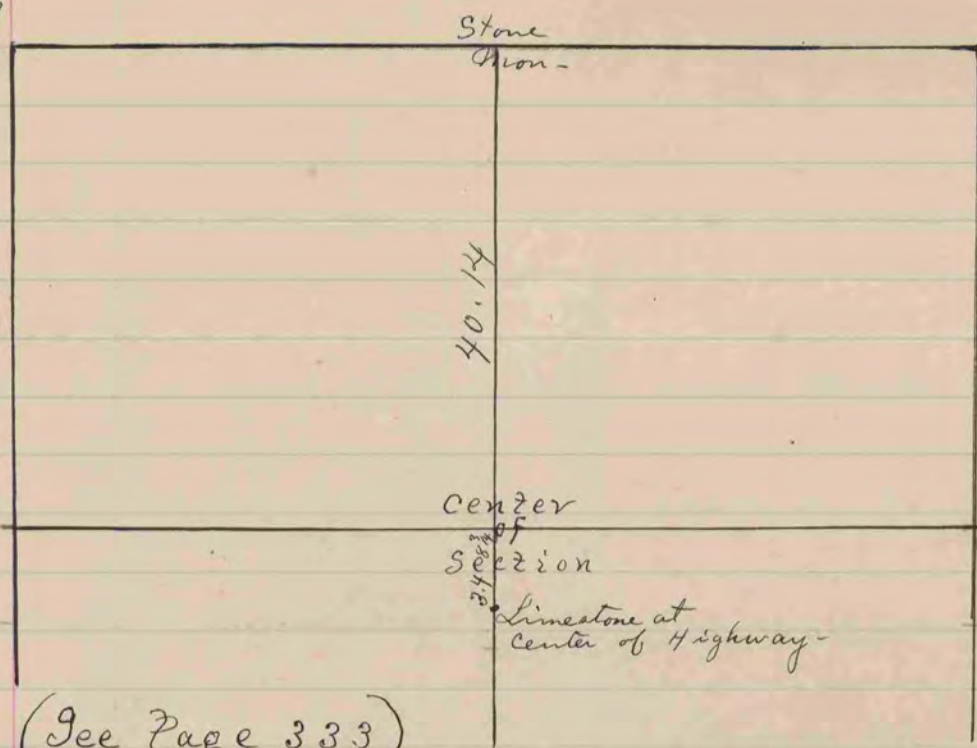 Stone
Mon-
40.14
center
of
Section
3.48 3/4
Limestone at
center of Highway-
(See Page 333)